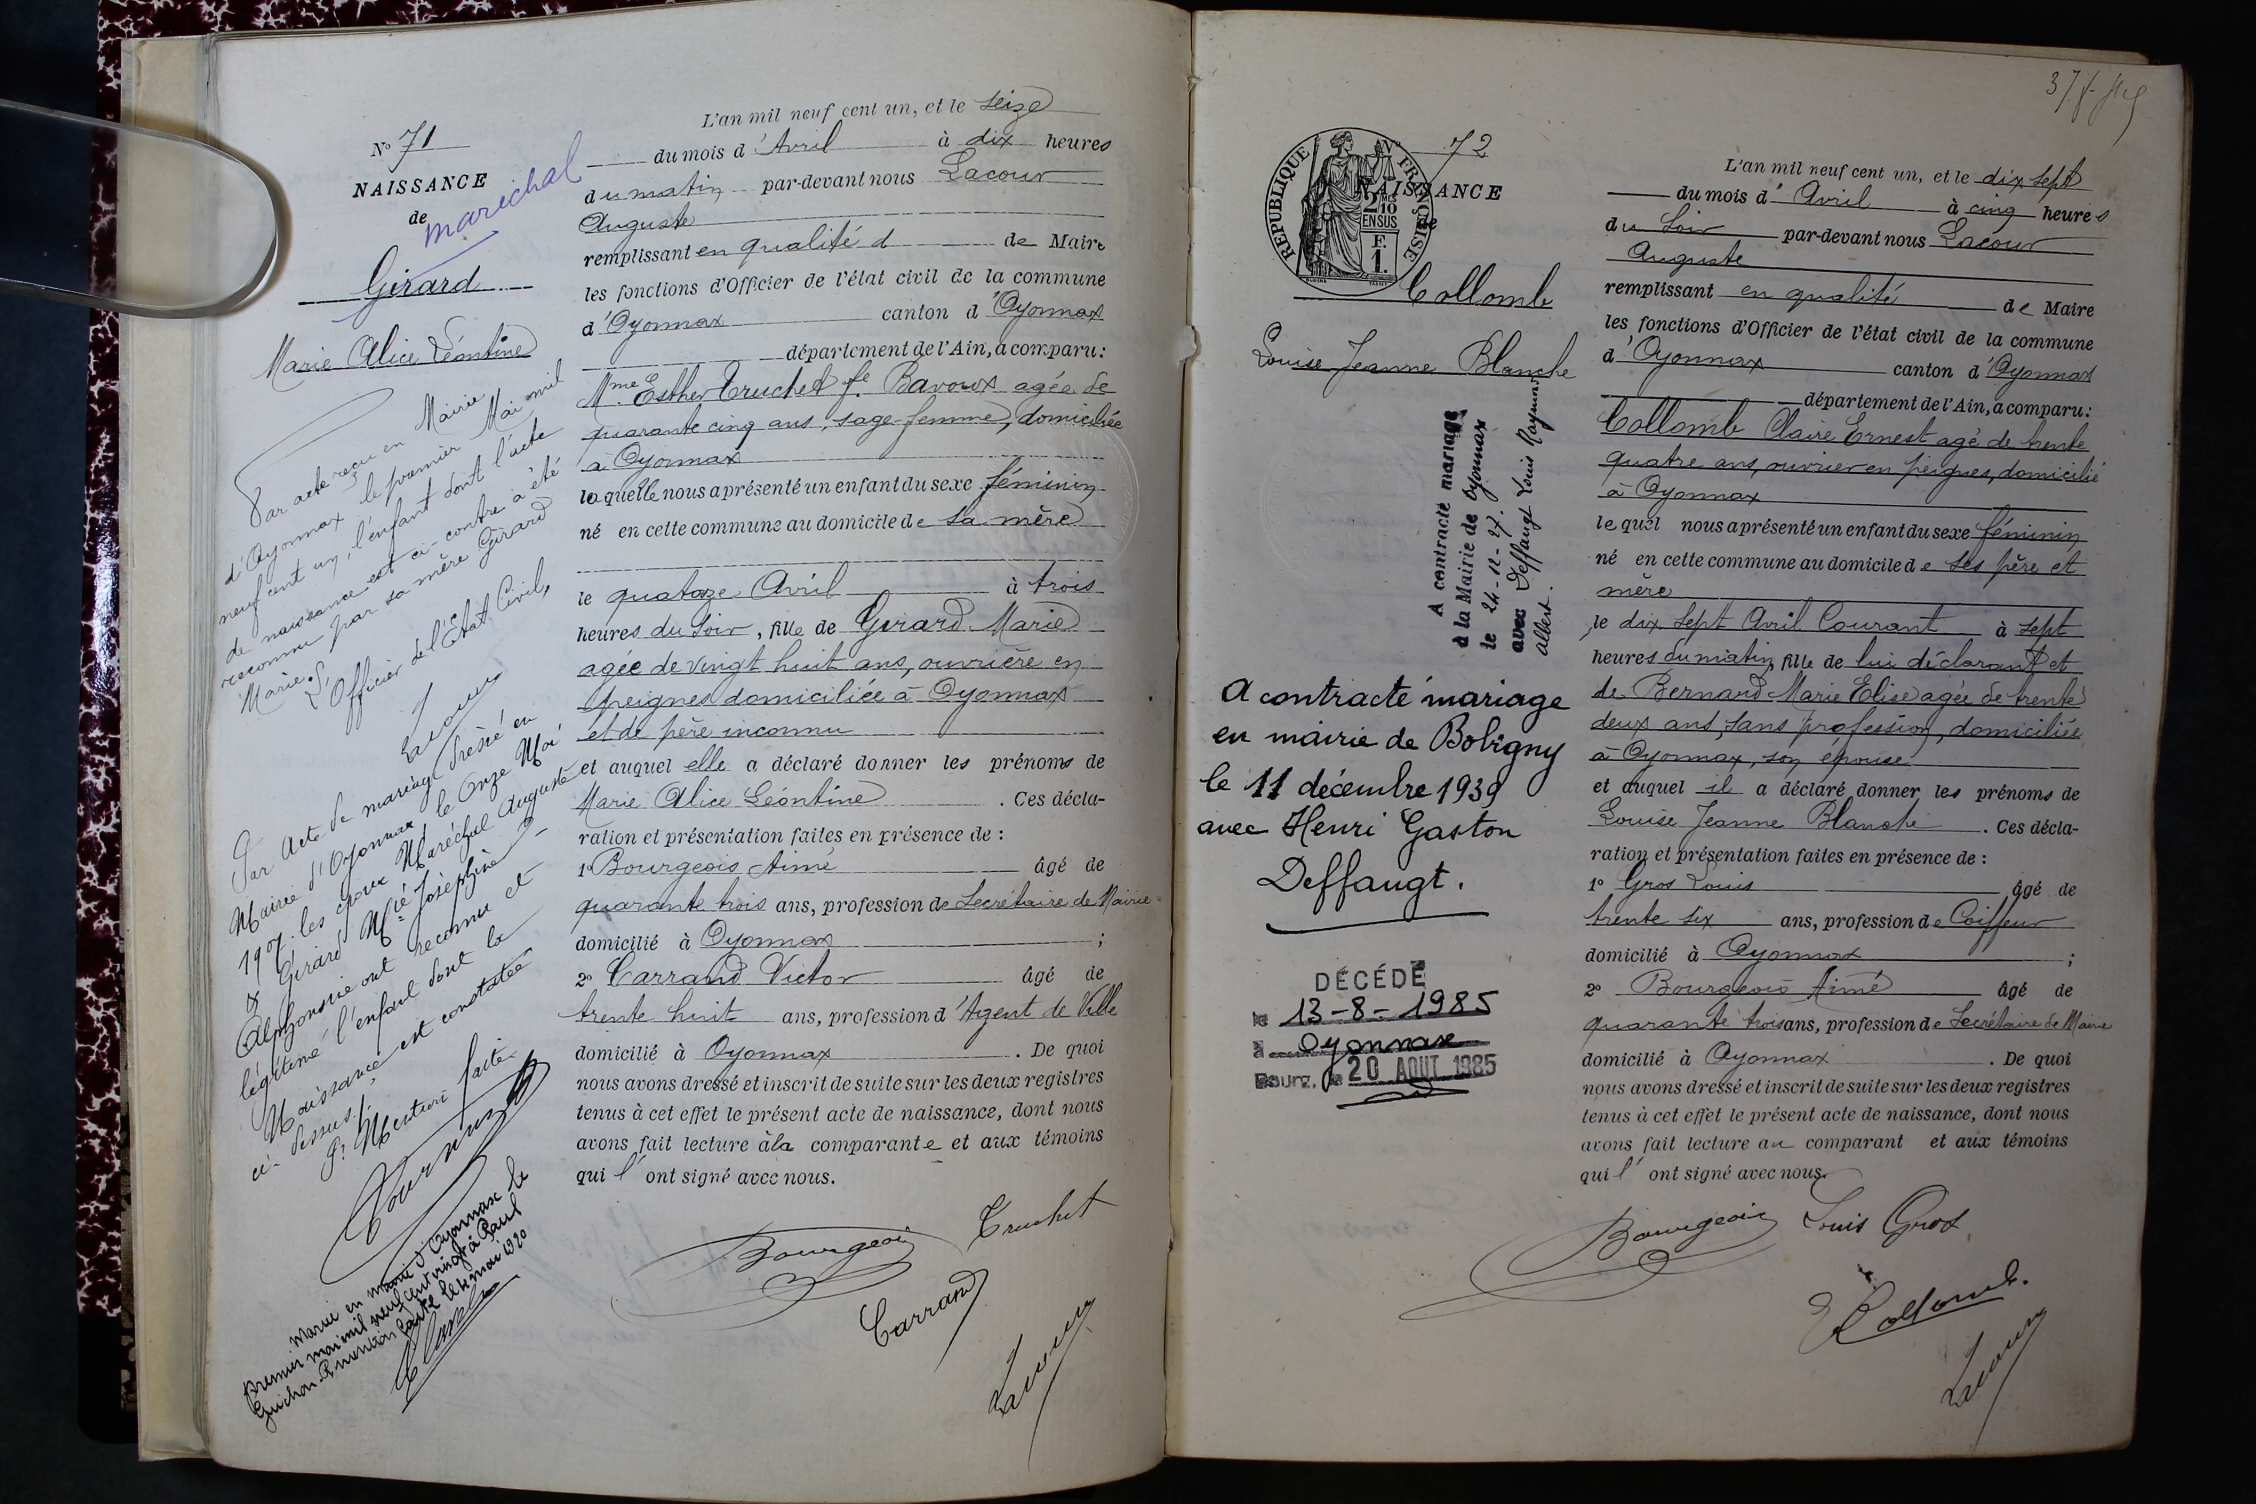 N° 71
NAISSANCE
de
maréchal
Girard
Marie Alice Léontine
Par acte reçu en Mairie
d'Oyonnax le premier Mai mil
neuf cent un, l'enfant dont l'acte
de naissance est ci-contre a été
reconnu par sa mère Girard
Marie.
L'Officier de l'État Civil,
Lacour
Par Acte de mariage dressé en
Mairie d'Oyonnax le Onze Mai
1907. les époux Maréchal Auguste
& Girard Mie Joséphine
Alphonsine ont reconnu et
légitimé l'enfant dont la
Naissance est constatée
ci-dessus.
Pr Mention faite
Marié en mairie d'Oyonnax le
premier mai mil neuf cent vingt à Paul
Guichon. Mention faite le 4 mai 1920
L'an mil neuf cent un, et le seize
du mois d'Avril à dix heures
du matin par-devant nous Lacour
Auguste
remplissant en qualité d de Maire
les fonctions d'Officier de l'état civil de la commune
d'Oyonnax canton d'Oyonnax
département de l'Ain, a comparu:
Mme Esther Truchet fe Bavoux agée de
quarante cinq ans, sage-femme, domiciliée
à Oyonnax
laquelle nous a présenté un enfant du sexe féminin
né en cette commune au domicile de sa mère
le quatorze Avril à trois
heures du soir, fille de Girard Marie
agée de vingt huit ans, ouvrière en
peignes domiciliée à Oyonnax
et de père inconnu
et auquel elle a déclaré donner les prénoms de
Marie Alice Léontine. Ces décla-
ration et présentation faites en présence de :
1° Bourgeois Aimé âgé de
quarante trois ans, profession de Secrétaire de Mairie
domicilié à Oyonnax ;
2° Carrand Victor âgé de
trente huit ans, profession d'Agent de Ville
domicilié à Oyonnax. De quoi
nous avons dressé et inscrit de suite sur les deux registres
tenus à cet effet le présent acte de naissance, dont nous
avons fait lecture à la comparante et aux témoins
qui l'ont signé avec nous.
Bourgeois Truchet
Carrand
Lacour
72
RÉPUBLIQUE FRANÇAISE
2/10 EN SUS
F. 1.
NAISSANCE
Collomb
Louise Jeanne Blanche
A contracté mariage
à la Mairie de Oyonnax
le 24-12-27.
avec Deffaugt Louis Raymond
Albert.
A contracté mariage
en mairie de Bobigny
le 11 décembre 1939
avec Henri Gaston
Deffaugt.
DÉCÉDÉ
le 13-8-1985
à Oyonnax
Bourg, le 20 AOUT 1985
L'an mil neuf cent un, et le dix sept
du mois d'Avril à cinq heures
du soir par-devant nous Lacour
Auguste
remplissant en qualité de Maire
les fonctions d'Officier de l'état civil de la commune
d'Oyonnax canton d'Oyonnax
département de l'Ain, a comparu:
Collomb Claire Ernest agé de trente
quatre ans, ouvrier en peignes, domicilié
à Oyonnax
lequel nous a présenté un enfant du sexe féminin
né en cette commune au domicile de ses père et
mère
le dix sept Avril Courant à sept
heures du matin, fille de lui déclarant et
de Bernard Marie Elise agée de trente
deux ans, sans profession, domiciliée
à Oyonnax, son épouse
et auquel il a déclaré donner les prénoms de
Louise Jeanne Blanche. Ces décla-
ration et présentation faites en présence de :
1° Gros Louis âgé de
trente six ans, profession de Coiffeur
domicilié à Oyonnax ;
2° Bourgeois Aimé âgé de
quarante trois ans, profession de Secrétaire de Mairie
domicilié à Oyonnax. De quoi
nous avons dressé et inscrit de suite sur les deux registres
tenus à cet effet le présent acte de naissance, dont nous
avons fait lecture au comparant et aux témoins
qui l'ont signé avec nous.
Bourgeois Louis Gros
E Collomb.
Lacour